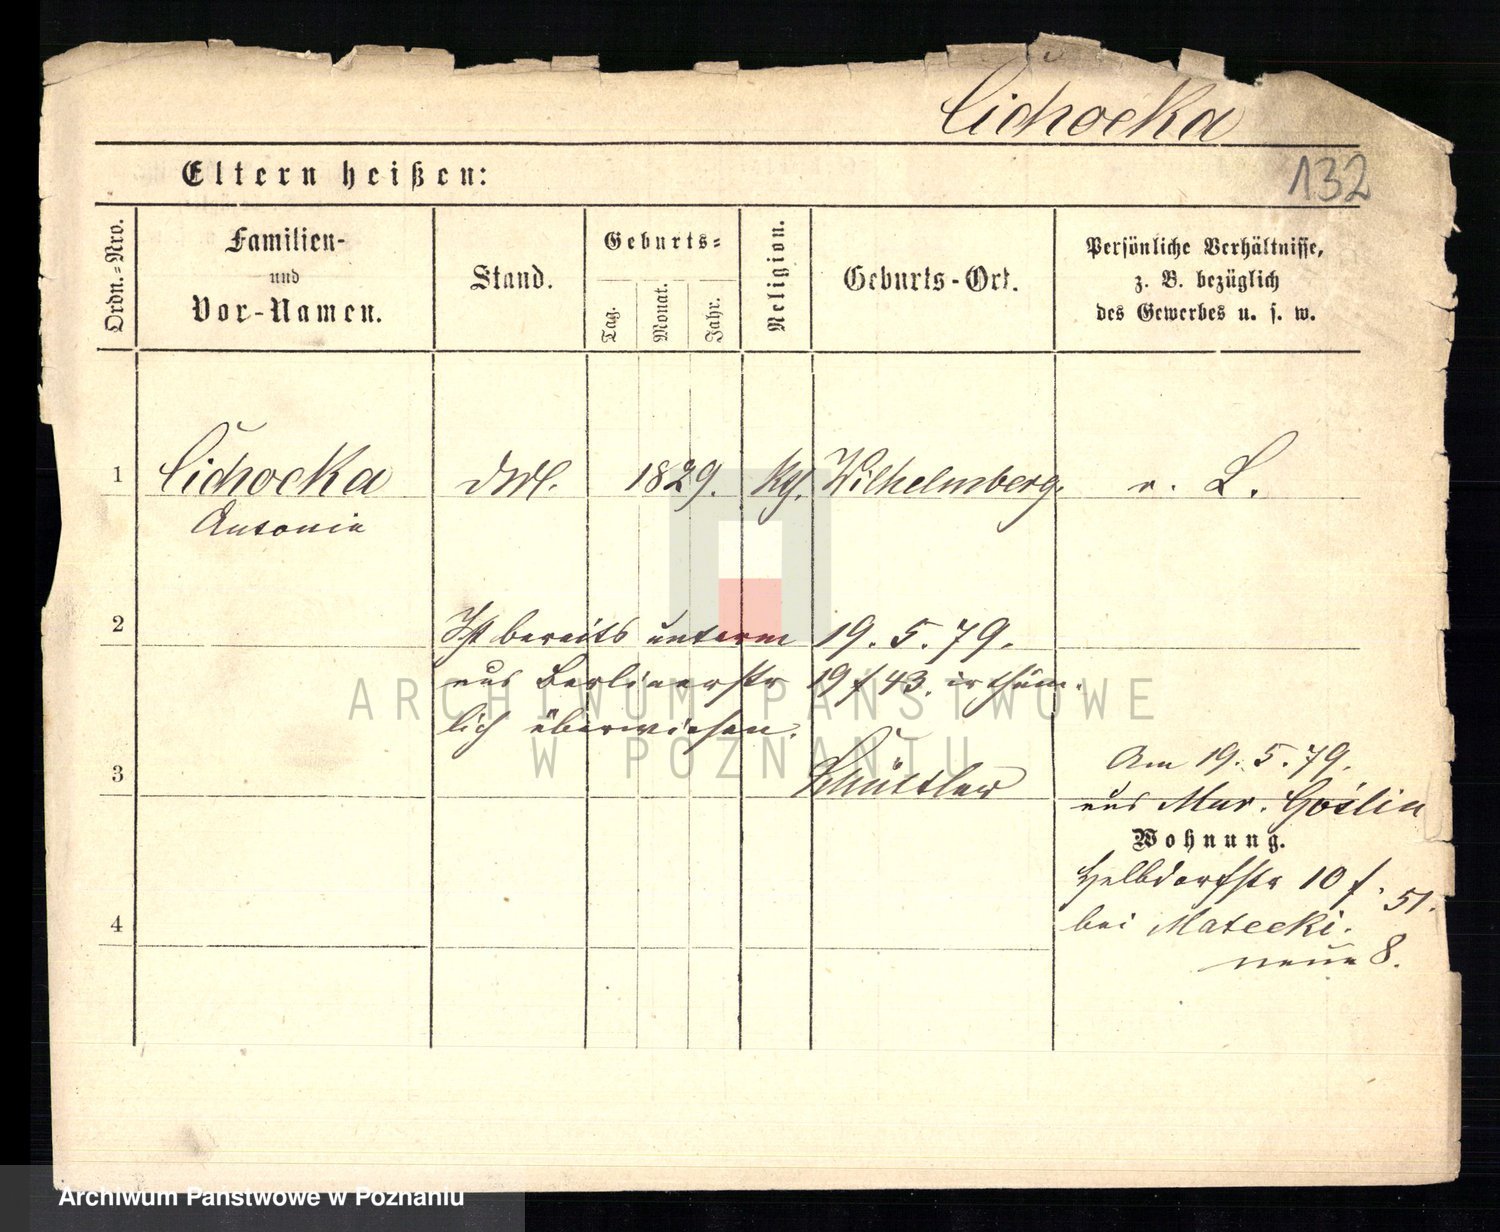 Cichocka
132
Eltern heißen:
Ordn.-Nro.
Familien-
und
Vor-Namen.
Stand.
Geburts-
Tag.
Monat.
Jahr.
Religion.
Geburts-Ort.
Persönliche Verhältnisse,
z. B. bezüglich
des Gewerbes u. s. w.
1 Cichocka 1829. Wilhelmsberg. v. L.
Antonie
2 Ist bereits unterm 19. 5. 79.
aus Berlinerstr 19 f 43. irthüm-
lich überwiesen.
3 Schüttler
Am 19. 5. 79.
aus Mur. Goślin
Wohnung.
10 f. 51.
4 bei Matecki.
neue 8.
ARCHIWUM PAŃSTWOWE
W POZNANIU
Archiwum Państwowe w Poznaniu